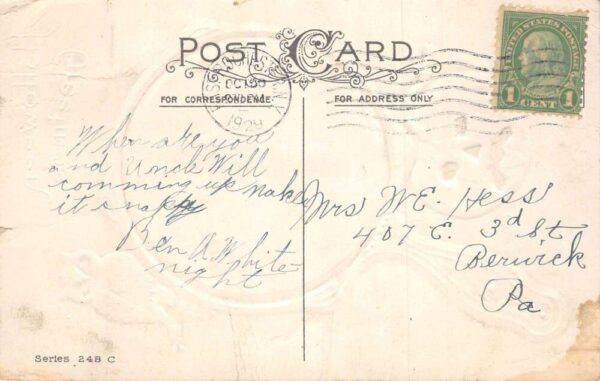 POST CARD
FOR CORRESPONDENCE
FOR ADDRESS ONLY
OCT 30
1929
UNITED STATES POSTAGE
1 CENT 1
When are you
and Uncle Will
comming up make
it snappy
Ben A. White
night
Mrs WE. Hess
407 E. 3d St
Berwick
Pa
Series 248 C